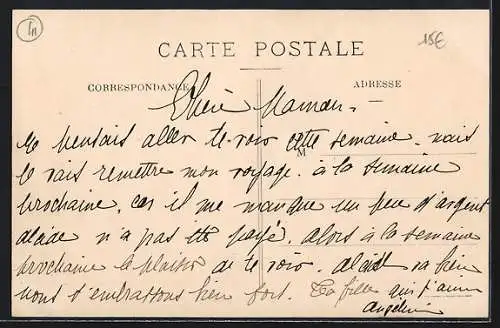 15€
CARTE POSTALE
CORRESPONDANCE
ADRESSE
Chère Maman.
Je pensais aller te voir cette semaine. mais
M
je vais remettre mon voyage. à la semaine
prochaine. car il me manque un peu d'argent
alcide n'a pas été payé. Alors à la semaine
prochaine le plaisir de te voir. alcide va bien
nous t'embrassons bien fort. Ta fille qui t'aime
Angéline